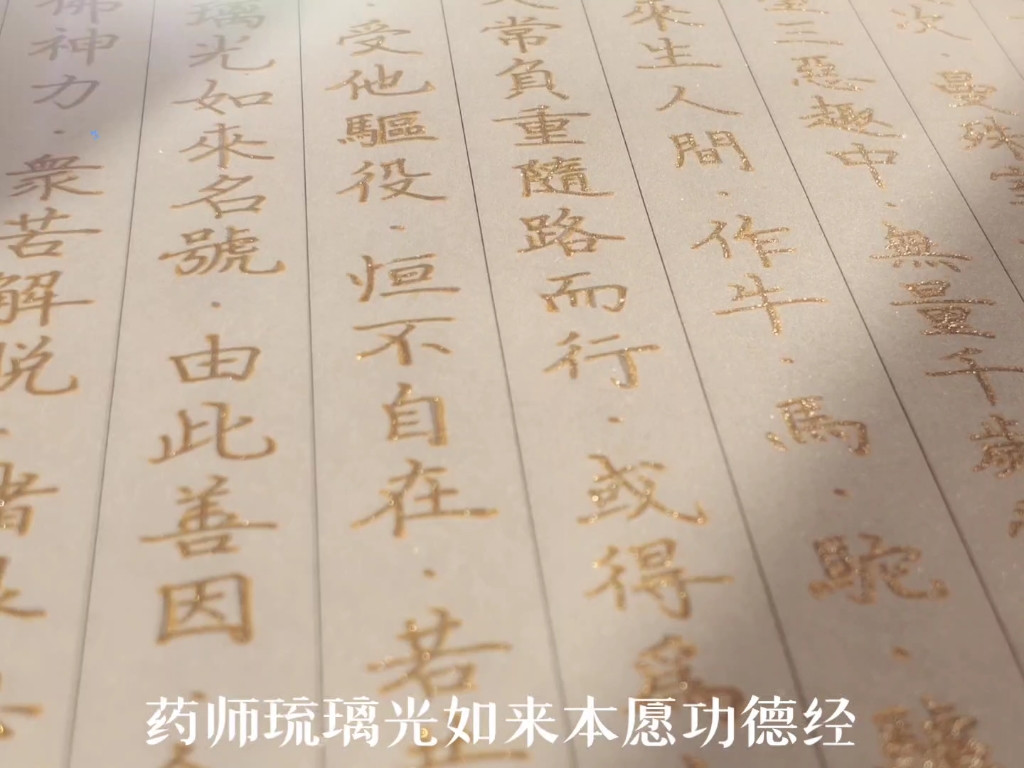 次·曼殊室
三惡趣中·無量千歲
來生人間·作牛·馬·駝·驢
常負重隨路而行·或得爲
受他驅役·恒不自在·若
璃光如來名號·由此善因·
佛神力·衆苦解脱·諸根
药师琉璃光如来本愿功德经